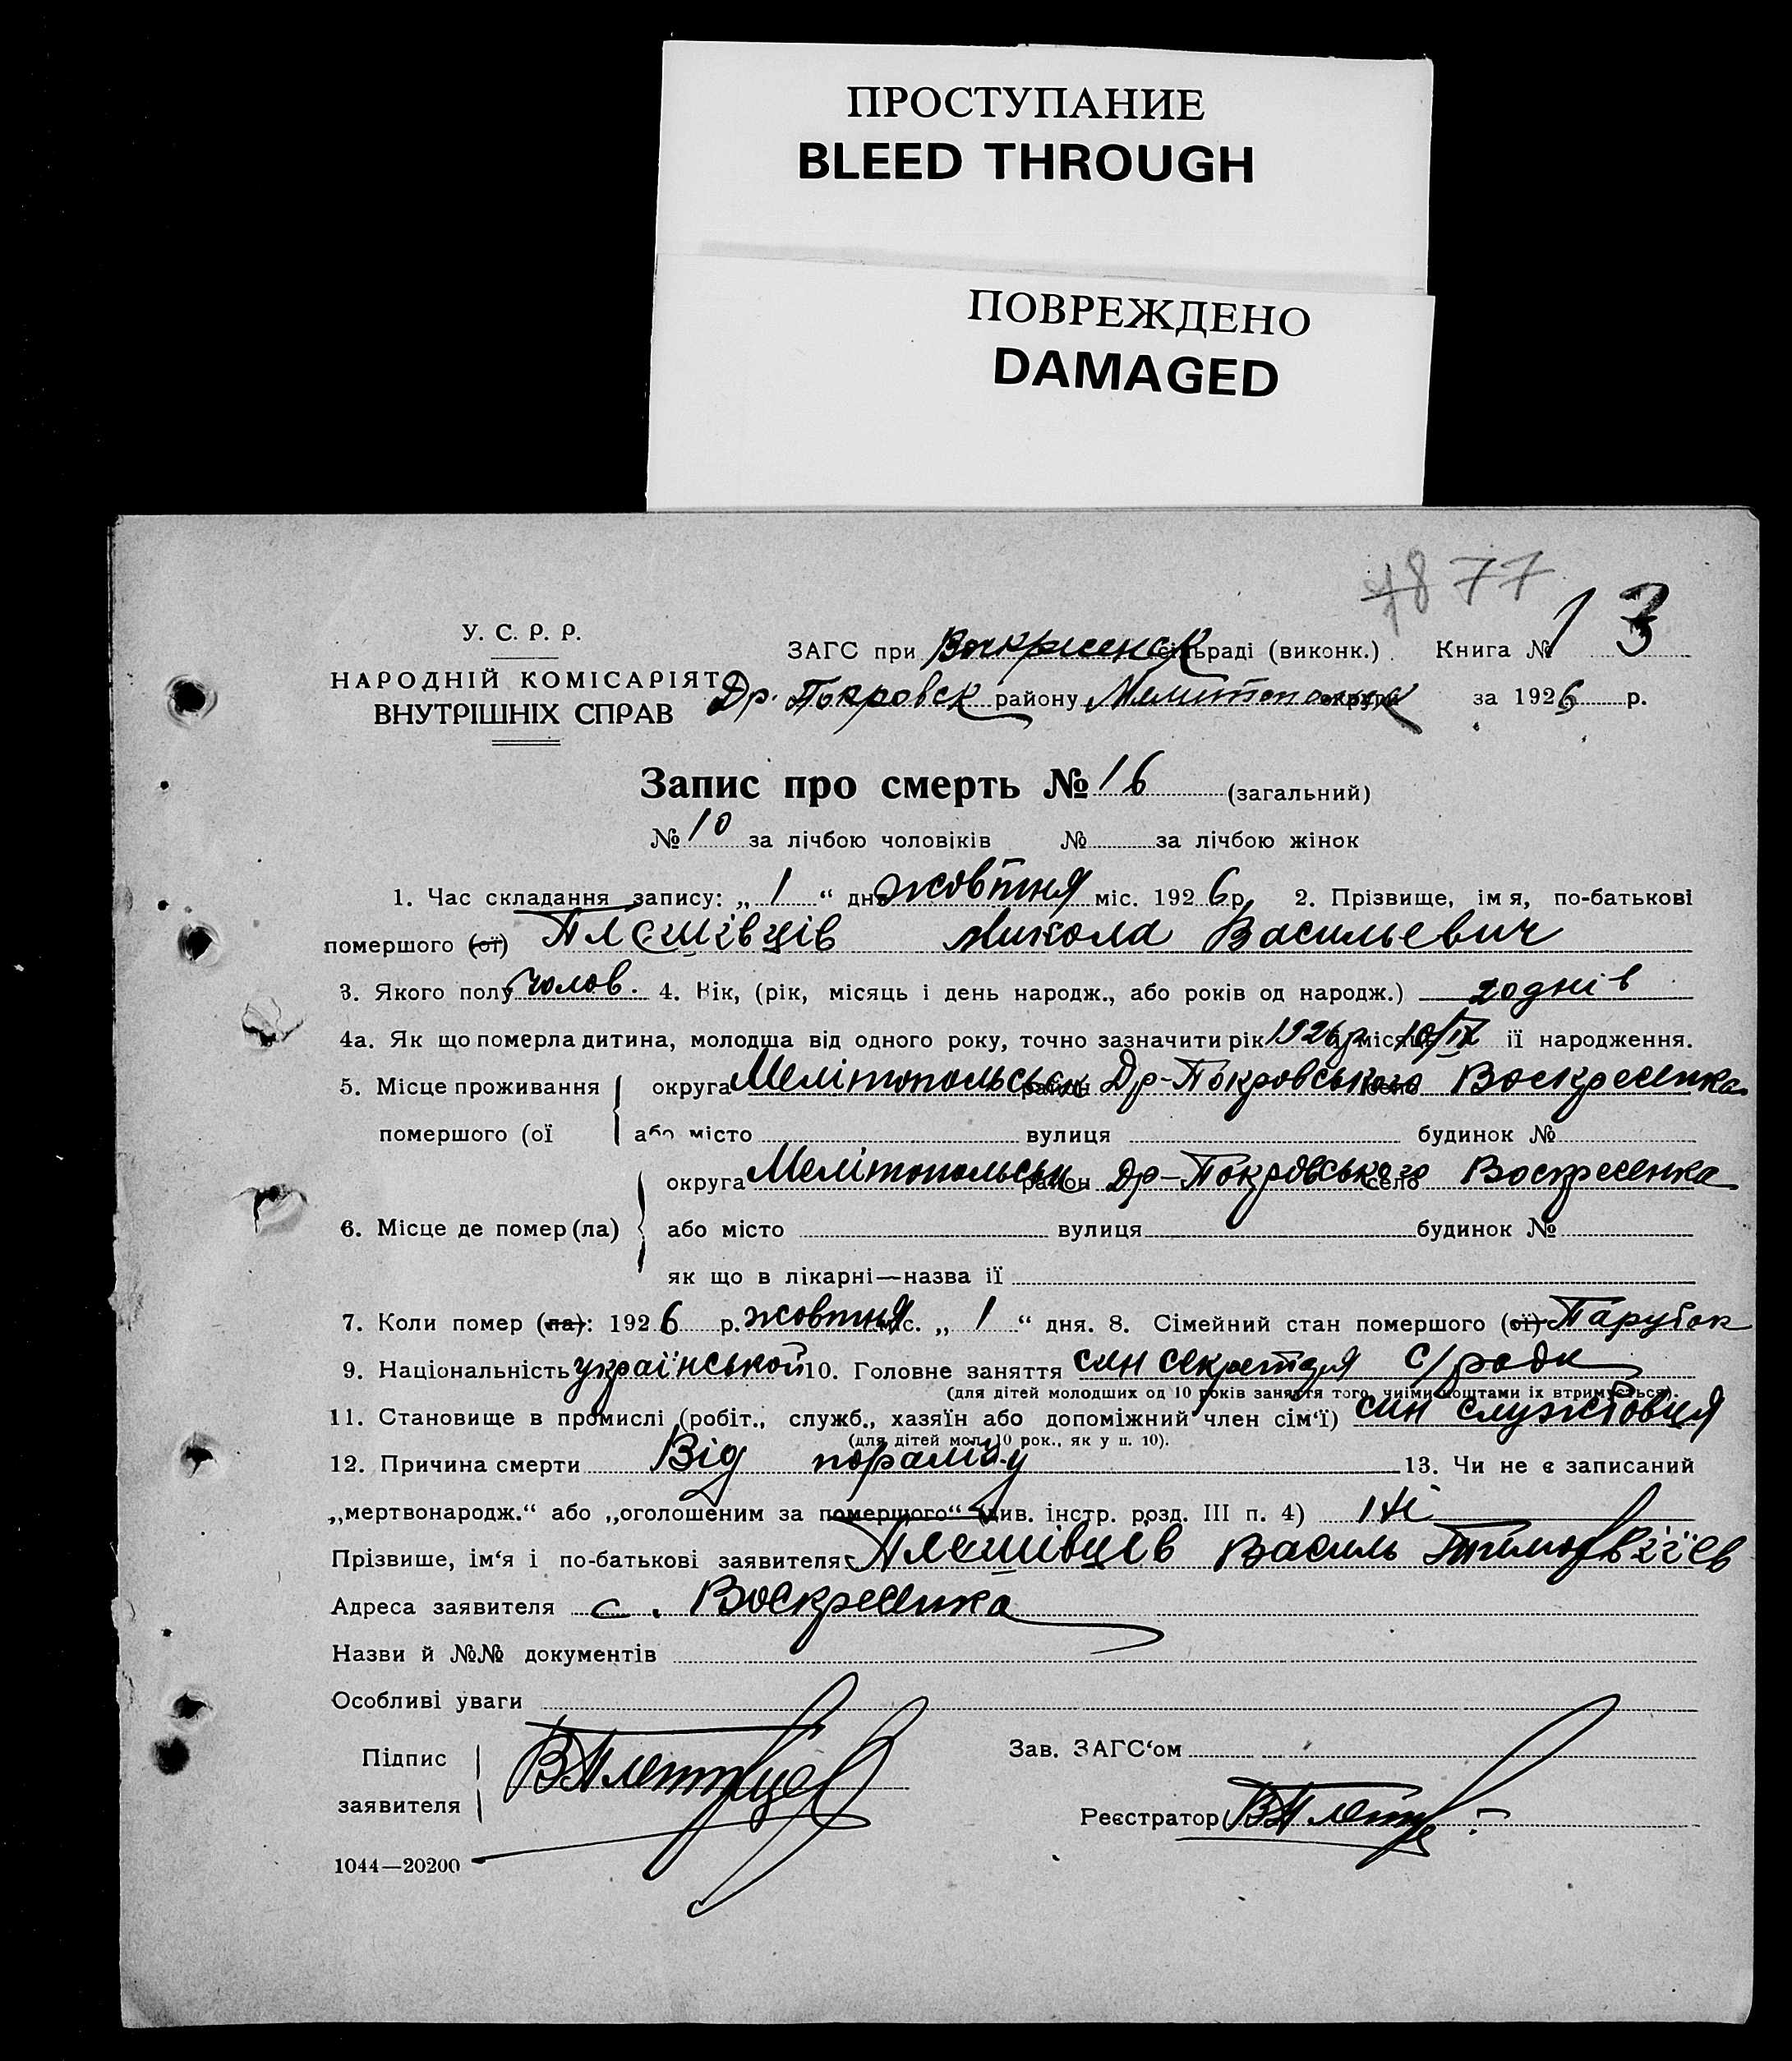 ПРОСТУПАНИЕ
BLEED THROUGH
ПОВРЕЖДЕНО
DAMAGED
7877
13
У. С. Р. Р.
НАРОДНІЙ КОМІСАРІЯТ
ВНУТРІШНІХ СПРАВ
ЗАГС при Воскресенск сільраді (виконк.) Книга № 1
Др. Покровск району Мелитопольск округи за 1926 р.
Запис про смерть № 16 (загальний)
№ 10 за лічбою чоловіків № за лічбою жінок
1. Час складання запису: „ 1 “ дня жовтня міс. 1926 р. 2. Прізвище, імя, по-батькові
помершого (ої) Микола Васильевич
3. Якого полу чолов. 4. Вік, (рік, місяць і день народж., або років од народж.) 20 днів
4а. Як що померла дитина, молодша від одного року, точно зазначити рік 1926 р місяць 10/IX її народження.
5. Місце проживання округа Мелітопольськ район Др-Покровського село Воскресенка
помершого (ої або місто вулиця будинок №
округа Мелітопольськ район Др-Покровського село Воскресенка
6. Місце де помер (ла) або місто вулиця будинок №
як що в лікарні—назва її
7. Коли помер (ла): 1926 р. жовтня міс. „ 1 “ дня. 8. Сімейний стан помершого (ої) Парубок
9. Національність української 10. Головне заняття син секретаря с/ради
(для дітей молодших од 10 років заняття того, чиїми коштами їх втримується).
11. Становище в промислі (робіт., служб., хазяїн або допоміжний член сім‘ї) син службовця
(для дітей мол. 10 рок., як у п. 10).
12. Причина смерти Від 13. Чи не є записаний
„мертвонародж.“ або „оголошеним за помершого“ (див. інстр. розд. III п. 4) ні
Прізвище, ім‘я і по-батькові заявителя Василь
Адреса заявителя с. Воскресенка
Назви й №№ документів
Особливі уваги
Підпис
заявителя
Зав. ЗАГС‘ом
Реєстратор
1044—20200